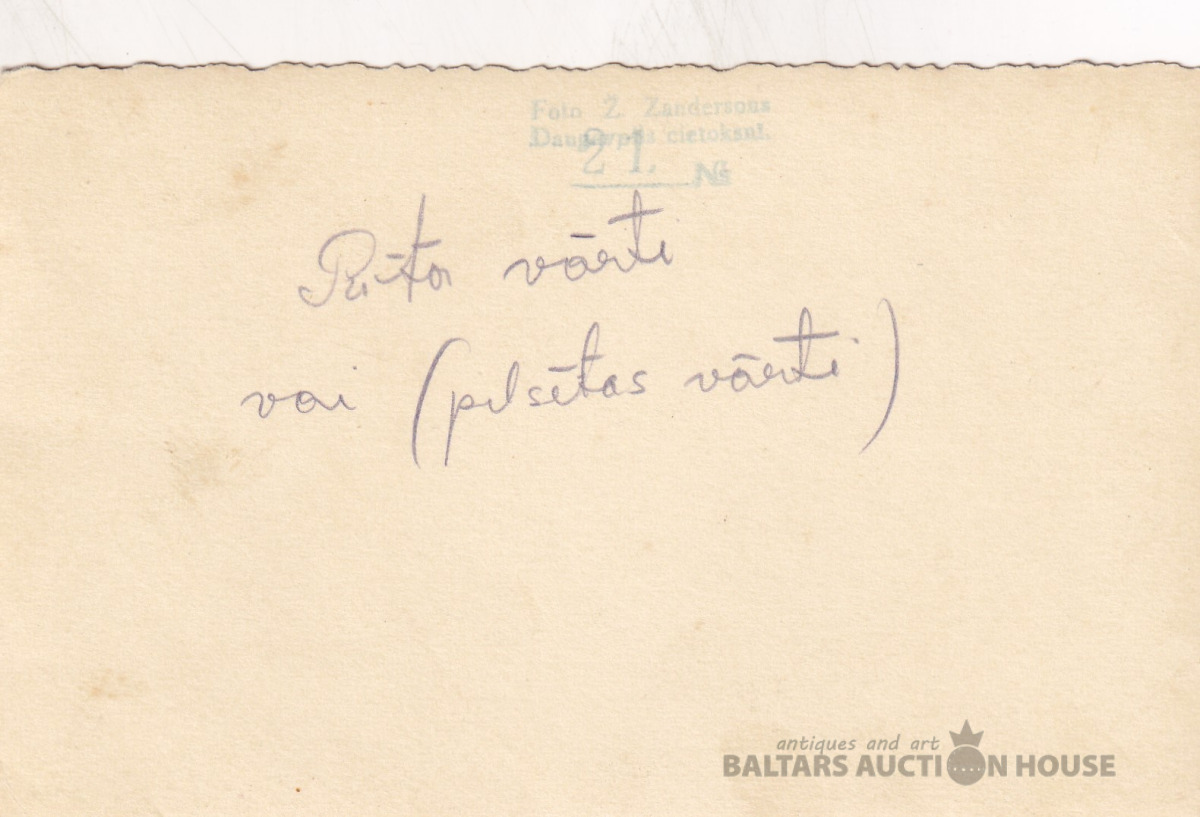 Foto Ž. Zandersons
Daugavpils cietoksnī.
21. №
vārti
vai (pilsētas vārti)
antiques and art
BALTARS AUCTION HOUSE